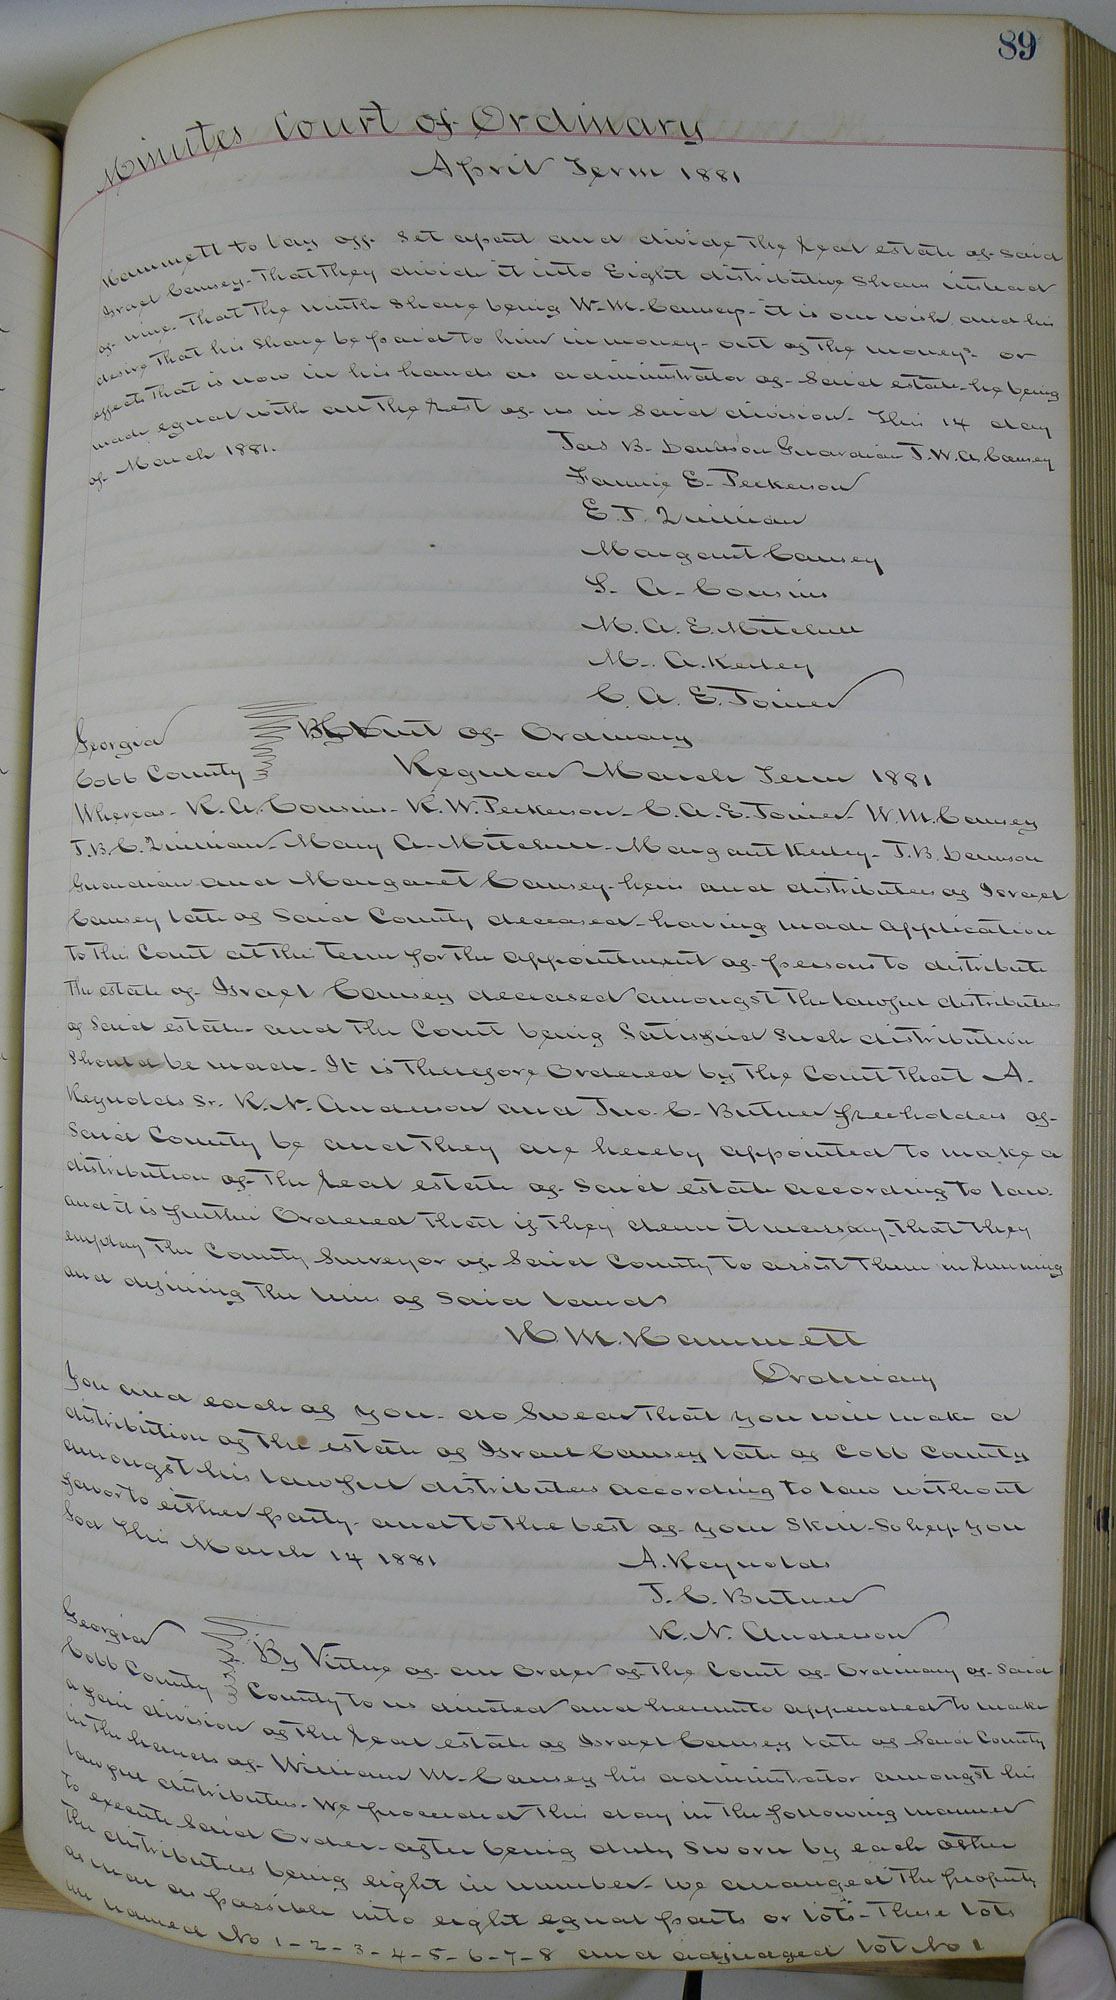 89
Minutes Court of Ordinary
April Term 1881
Hammett to lay off set apart and divide the real estate of said
Israel Causey. That they divide it into Eight distributive Shares instead
of nine. That the ninth Share being W. M. Causeys- it is our wish and his
desire that his Share be paid to him in money- out of the moneys or
effects that is now in his hands as administrator of said estate- he being
made equal with all the rest of us in said division. This 14 day
of March 1881.
Jas B. Guardian J. W. A. Causey
Fannie E. Perkerson
E. J. Quillian
Margaret Causey
S. A. Cousins
M. A. E. Mitchell
M. A. Kelley
C. A. E. Joiner
Georgia
Cobb County
Court of Ordinary
Regular March Term 1881
Whereas- R. A. Cousins- R. W. Perkerson- C. A. E. Joiner- W. M. Causey
J. B. C. Quillian- Mary A. Mitchell- Margaret Kelley- J. B.
Guardian and Margaret Causey- heirs and distributees of Israel
Causey late of Said County deceased- having made application
to this Court at this term for the appointment of persons to distribute
the estate of Israel Causey deceased amongst the lawful distributees
of Said estate- and the Court being Satisfied Such distribution
Should be made. It is therefore Ordered by the Court that A.
Reynolds Sr. R. N. Anderson and Jno. C. Butner freeholders of
Said County be and they are hereby appointed to make a
distribution of the real estate of Said estate according to law.
and it is further Ordered that if they deem it necessary, that they
employ the County Surveyor of Said County to assist them in running
and defining the lines of Said lands
H. M. Hammett
Ordinary
You and each of you- do Swear that you will make a
distribution of the estate of Israel Causey late of Cobb County
amongst his lawful distributees according to law without
favor to either party- and to the best of your Skill- So help you
God This March 14 1881
A. Reynolds
J. C. Butner
R. N. Anderson
Georgia
Cobb County
By Virtue of an Order of the Court of Ordinary of Said
County to us directed and hereunto appended to make
a fair division of the real estate of Israel Causey late of Said County
in the hands of William M. Causey his administrator amongst his
lawful distributees- We proceeded this day in the following manner
to execute Said Order- after being duly Sworn by each other
the distributees being eight in number- we arranged the property
as near as possible into eight equal parts or lots- These lots
are named No 1-2-3-4-5-6-7-8 and adjudged lot No 1